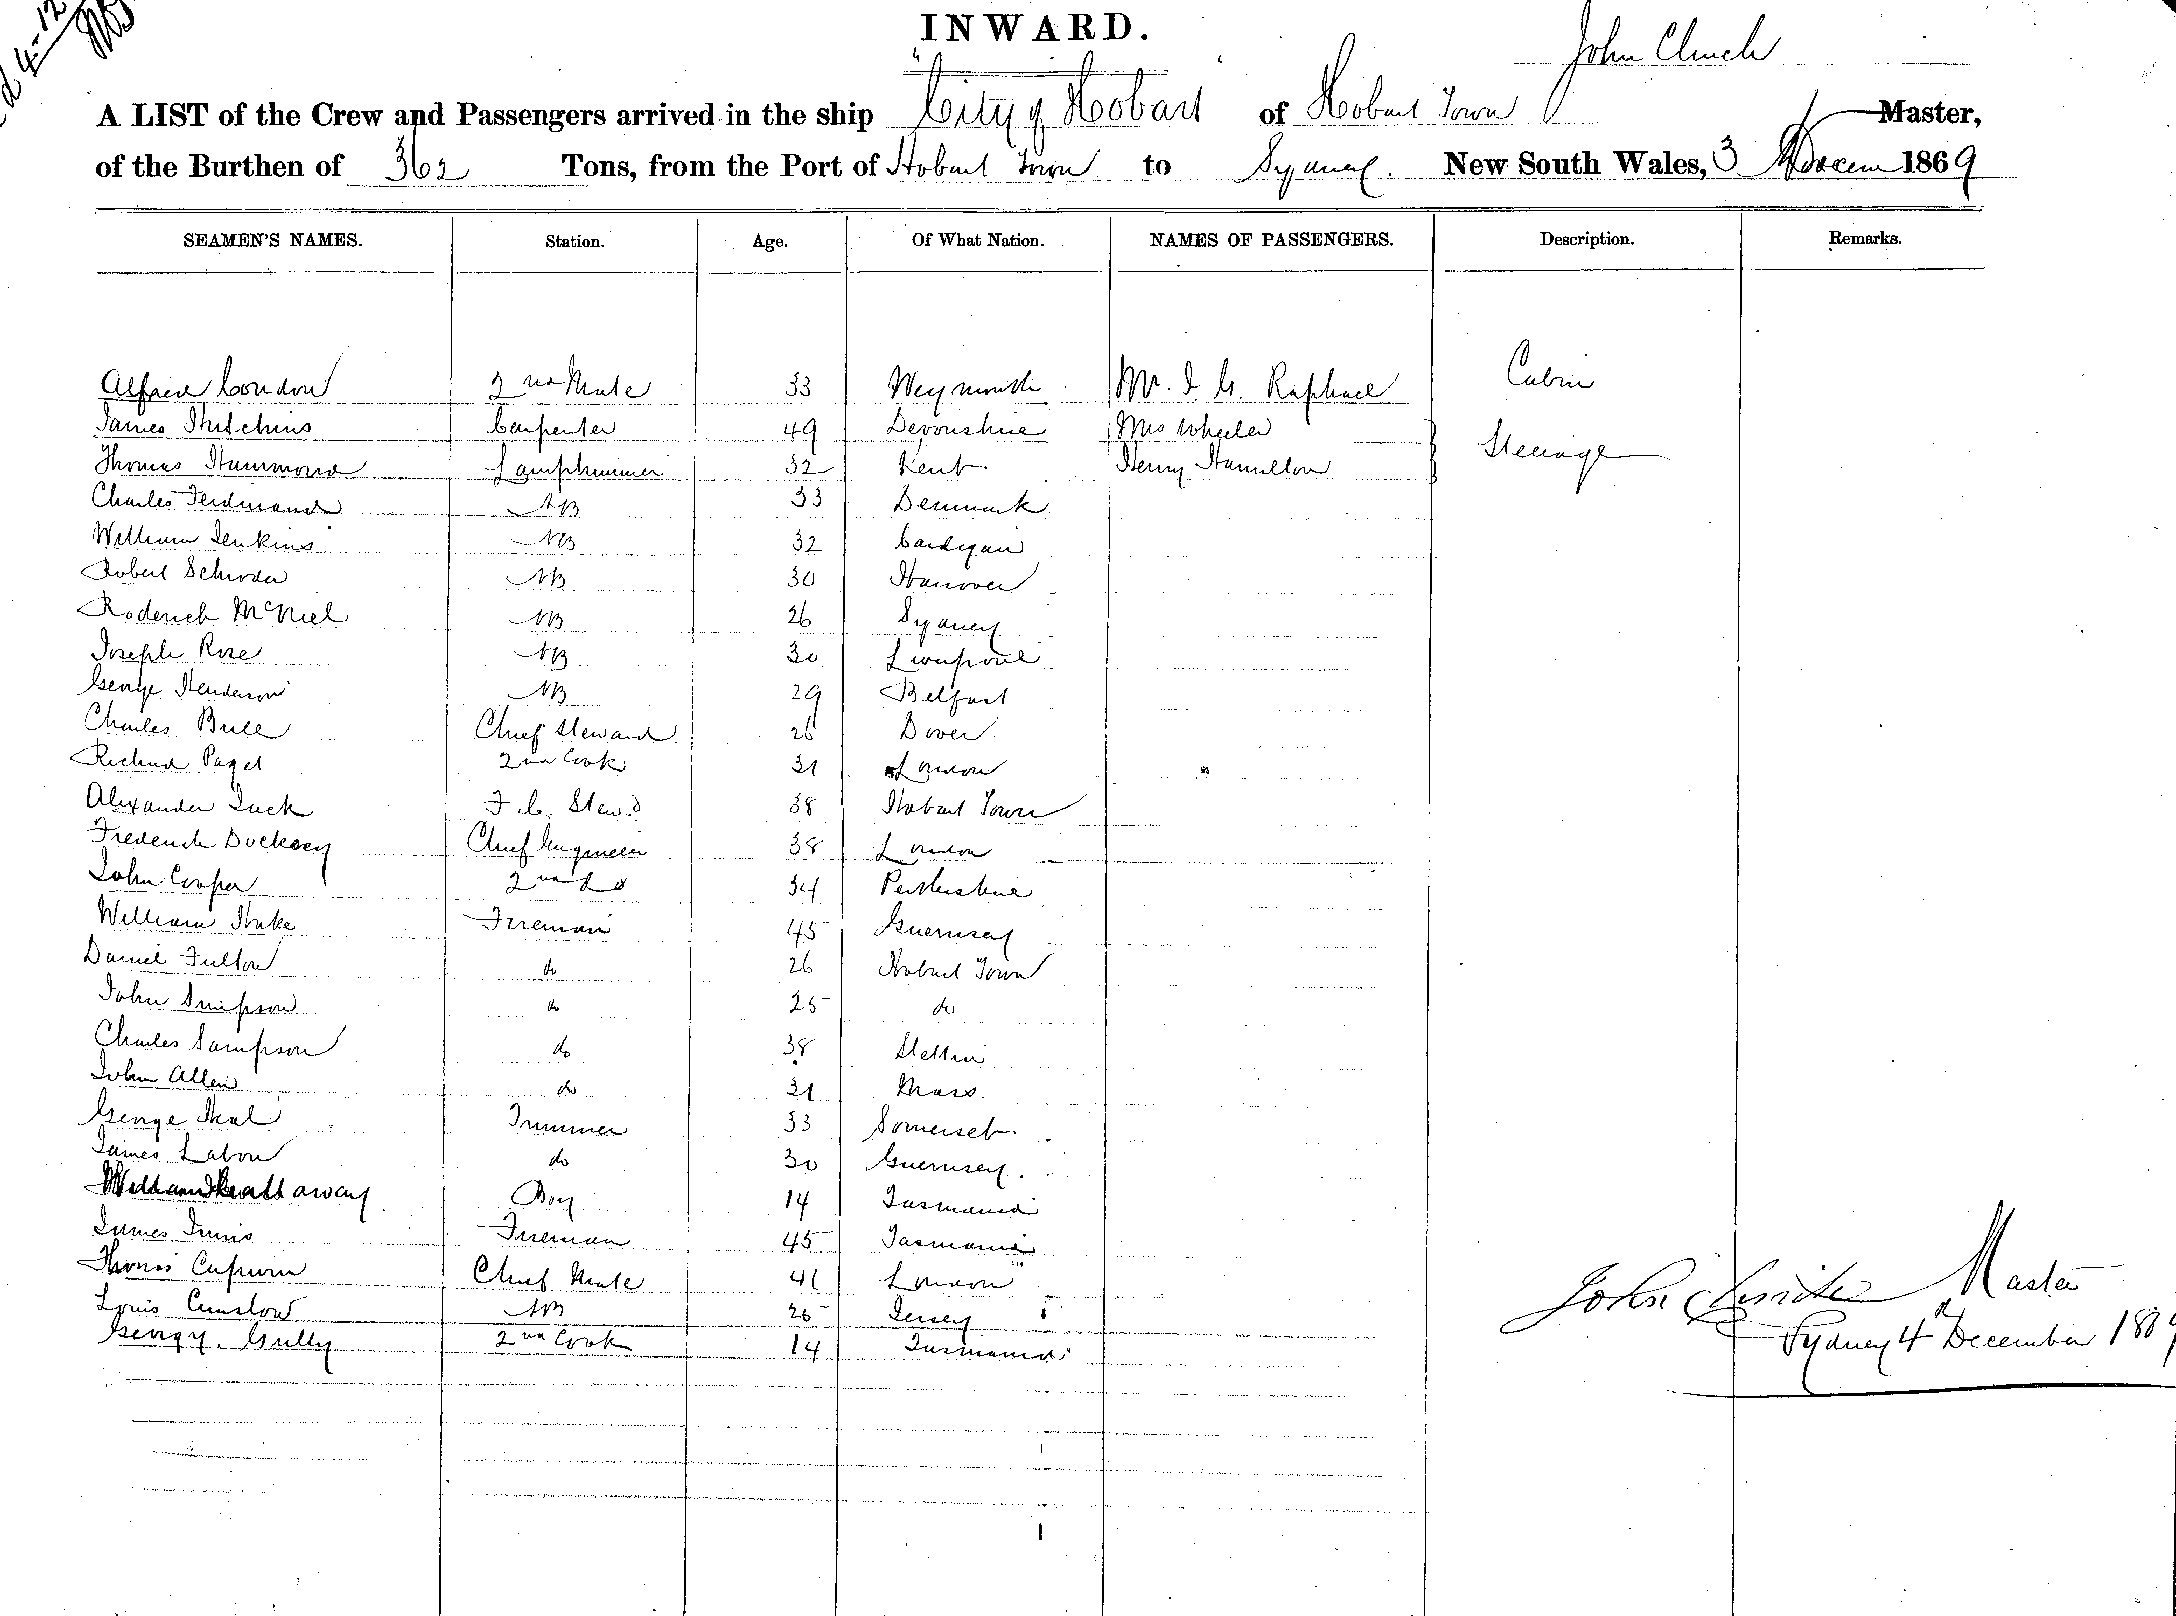 d 4-12
INWARD.
John Clinch
A LIST of the Crew and Passengers arrived in the ship "City of Hobart" of Hobart Town Master,
of the Burthen of 362 Tons, from the Port of Hobart Town to Sydney. New South Wales, 3 1869
SEAMEN'S NAMES. Station. Age. Of What Nation. NAMES OF PASSENGERS. Description. Remarks.
Alfred London 2nd Mate 33 Weymouth Mr. J. G. Raphael Cabin
James Hutchins Carpenter 49 Devonshire Mrs Wheeler
Thomas Hammond Lamptrimmer 32 Kent Henry Hamilton Steerage
Charles Ferdinand AB 33 Denmark
William Jenkins AB 32 Cardigan
Robert Schroder AB 30 Hanover
Roderick McNiel AB 26 Sydney
Joseph Rose AB 30 Liverpool
George Henderson AB 29 Belfast
Charles Bull Chief Steward 26 Dover
Richard Paget 2nd Cook 31 London
Alexander Luck F. C. Stewd 38 Hobart Town
Frederick Docksey Chief Engineer 38 London
John Cooper 2nd Do 34 Perthshire
William Hake Fireman 45 Guernsey
Daniel Fulton do 26 Hobart Town
John Simpson do 25 do
Charles Sampson do 38 Stettin
John Allen do 31 Mass
George Neal Trimmer 33 Somerset
James Labon do 30 Guernsey.
William away Boy 14 Tasmania
James Fireman 45 Tasmania
Thomas Chief Mate 41 London
Louis AB 26 Jersey
George Gully 2nd Cook 14 Tasmania
John Clinch Master
Sydney 4th December 1869